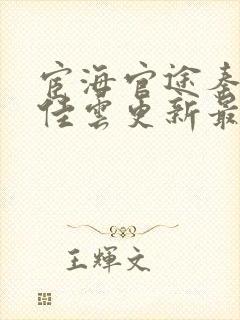 宦海官途秦
佳雲更新最
王輝文